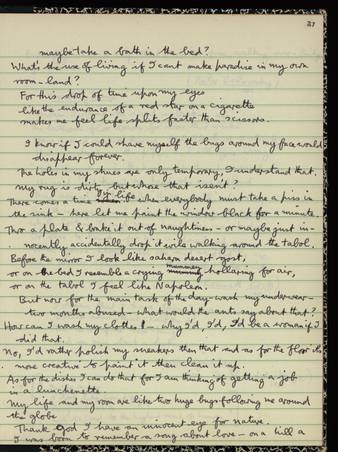 37
maybe take a bath in the bed?
What's the use of living if I cant make paradise in my own
room-land?
For this drop of time upon my eyes
like the endurance of a red star on a cigarette
makes me feel life splits faster than scissors.
I know if I could shave myself the bugs around my face would
disappear forever.
The holes in my shues are only temporary, I understand that.
My rug is dirty but whose that isent?
There comes a time in life when everybody must take a piss in
the sink - here let me paint the window black for a minute
Thro a plate & brake it out of naughtiness - or maybe just in-
nocently accidentally drop it wile walking around the tabol.
Before the mirror I look like sahara desert gost,
or on the bed I resemble a crying mummey hollaring for air,
or on the tabol I feel like Napoleon.
But now for the main task of the day - wash my underwear -
two months abused - what would the ants say about that?
How can I wash my clothes! - why I'd, I'd, I'd be a woman if I
did that.
No, I'd rather polish my sneakers then that and as for the floor its
more creative to paint it then clean it up.
As for the dishes I can do that for I am thinking of getting a job
in a lunchenette.
My life and my room are like two huge bugs following me around
the globe
Thank God I have an innocent eye for nature.
I was born to remember a song about love - on a hill a